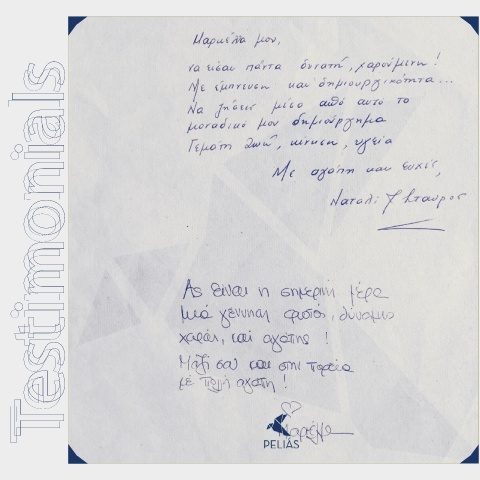 Testimonials
Μαρκέλλα μου,
να είσαι πάντα δυνατή, χαρούμενη!
Με έμπνευση και δημιουργικότητα...
Να ζήσεις μέσα από αυτό το
μοναδικό μου δημιούργημα
Γεμάτη ζωή, κίνηση, υγεία
Με αγάπη και ευχές,
Ναταλί Σταύρος
Ας είναι η σημερινή μέρα
μια γέννηση φωτός, δύναμις
χαράς, και αγάπης!
Μαζί σου και στην πορεία
με πολλή αγάπη!
PELIAS